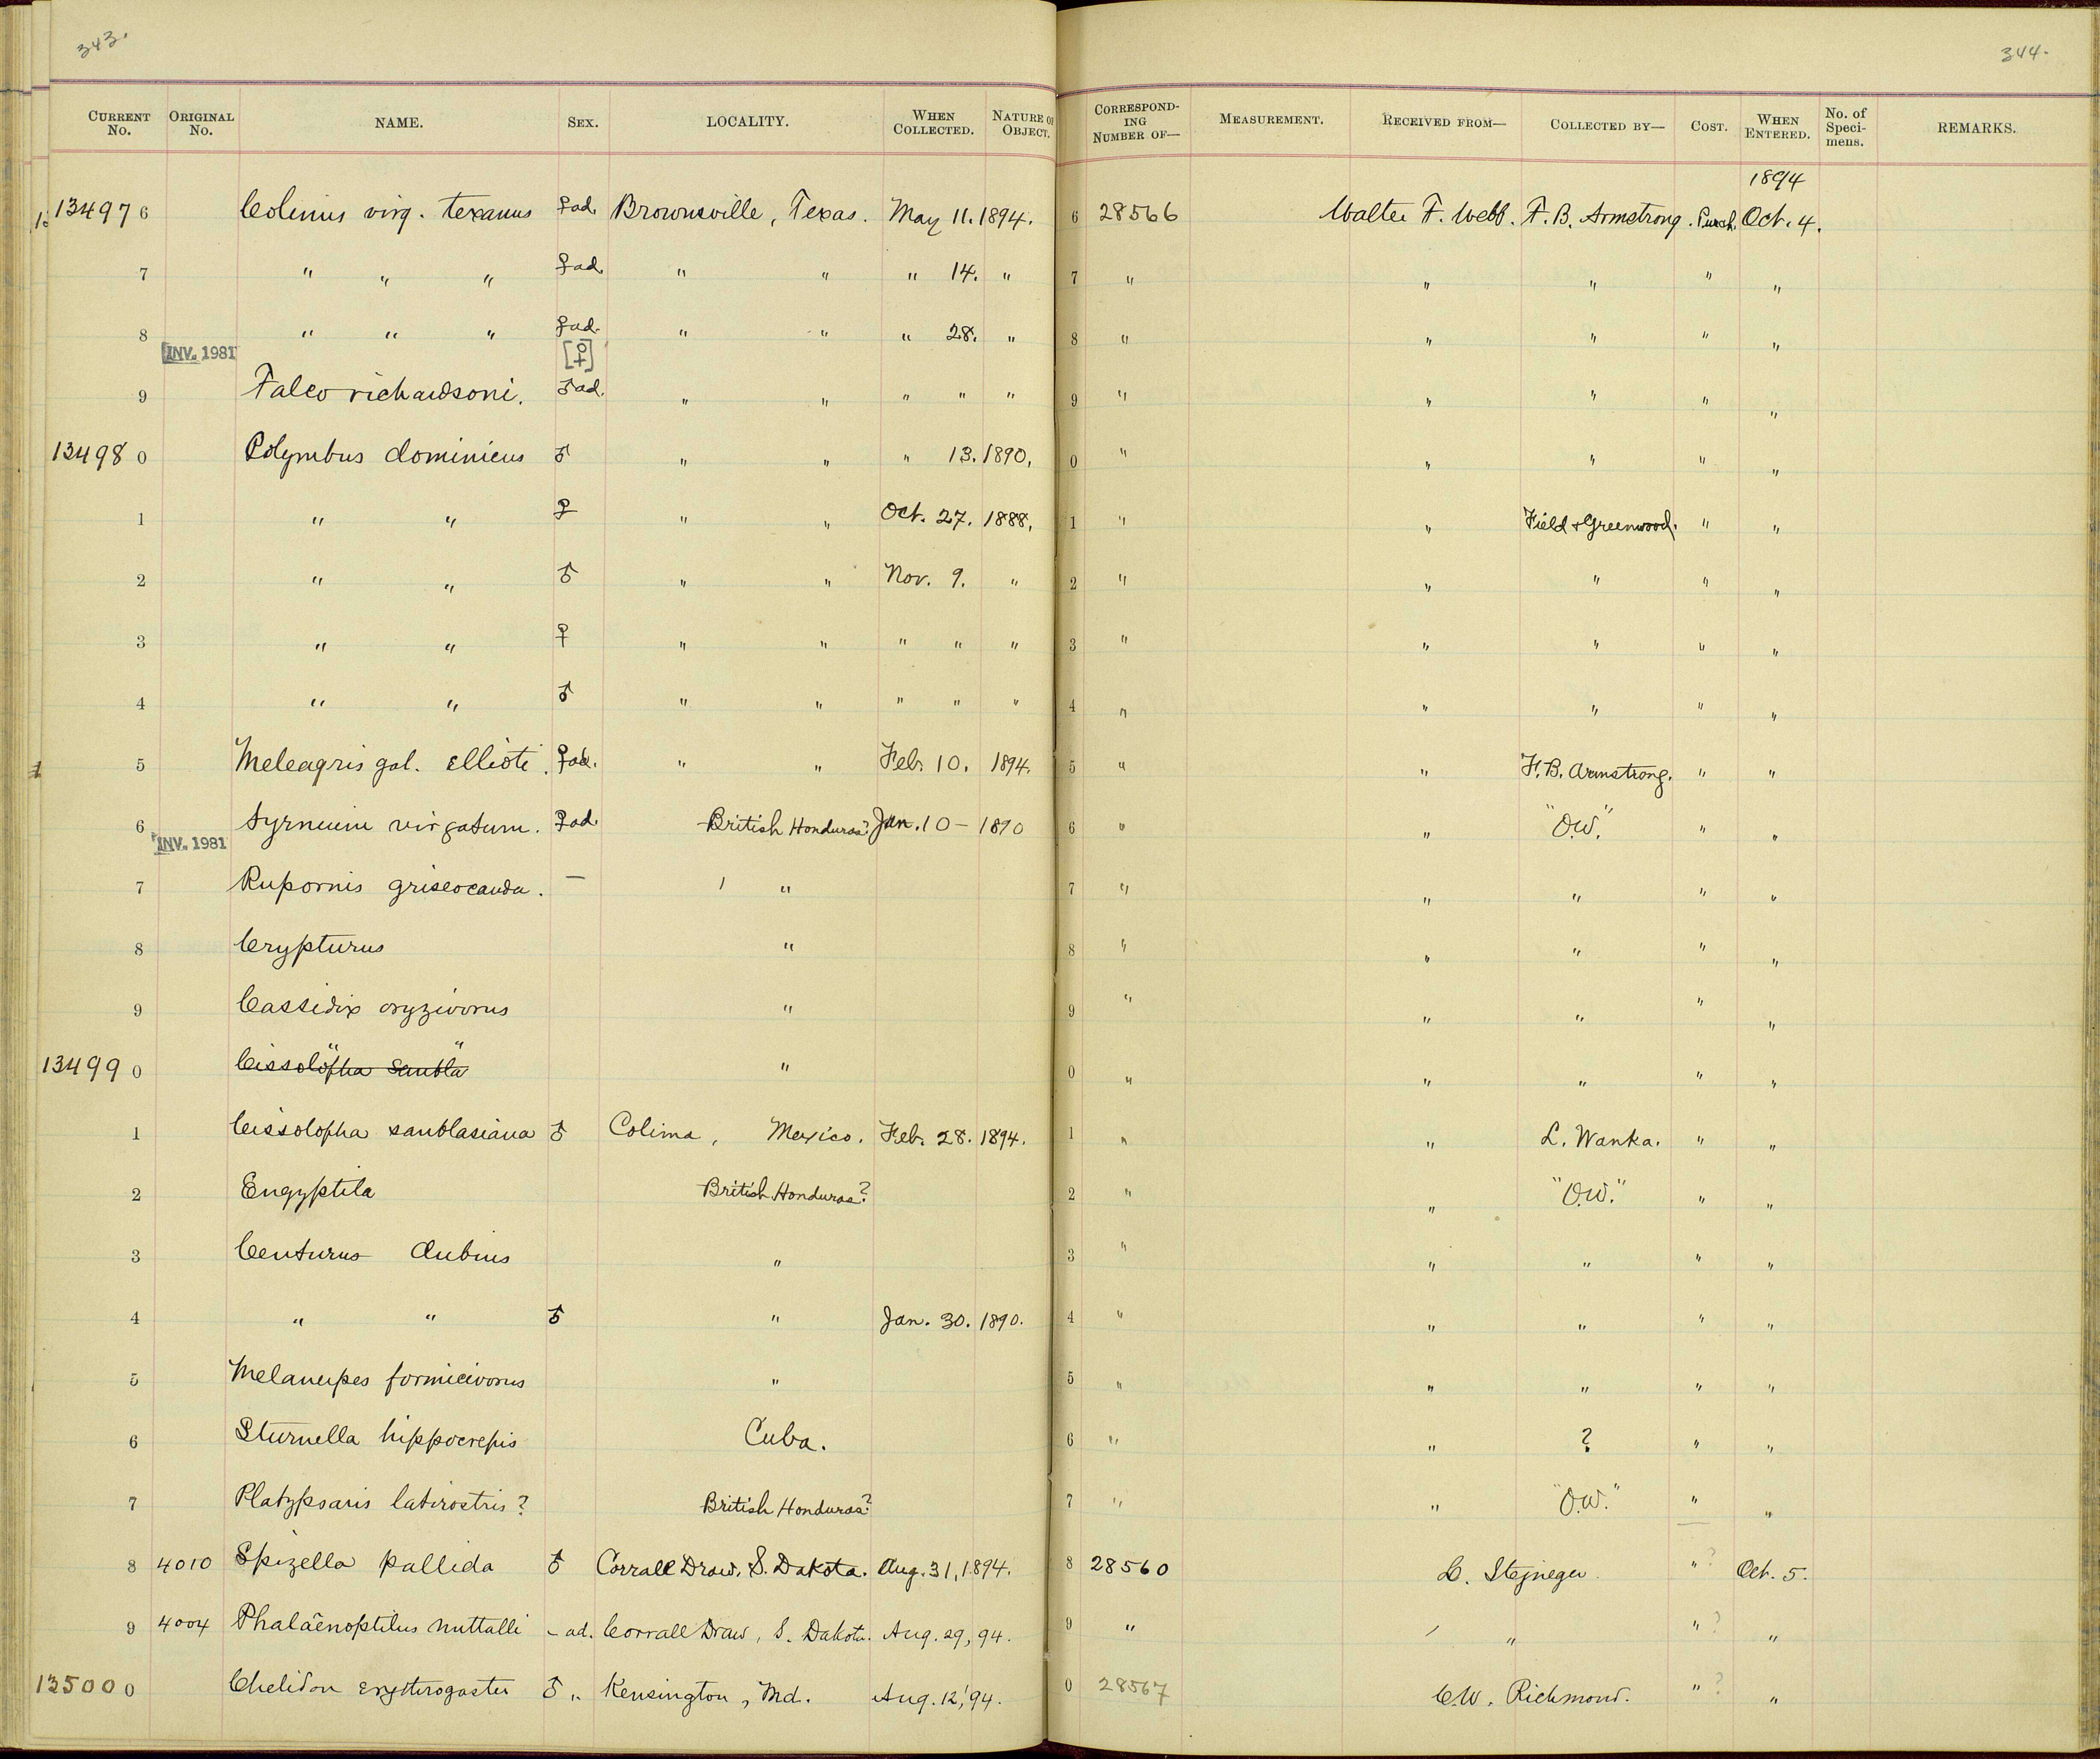 343.
344.
CURRENT No. ORIGINAL No. NAME. SEX. LOCALITY. WHEN COLLECTED. NATURE OF OBJECT. CORRESPONDING NUMBER OF— MEASUREMENT. RECEIVED FROM— COLLECTED BY— COST. WHEN ENTERED. No. of Specimens. REMARKS.
1894
134976 Colinus virg. texanus ♀ad. Brownsville, Texas. May 11. 1894. 6 28566 Walter F. Webb. F. B. Armstrong. Purch. Oct. 4.
7 " " " ♀ad. " " " 14. " 7 " " " " "
8 " " " ♀ad. " " " 28. " 8 " " " " "
INV. 1981 [♀]
9 Falco richardsoni. ♂ad. " " " " " 9 " " " " "
134980 Colymbus dominicus ♂ " " " 13. 1890. 0 " " " " "
1 " " ♀ " " Oct. 27. 1888. 1 " " Field & Greenwood. " "
2 " " ♂ " " Nov. 9. " 2 " " " " "
3 " " ♀ " " " " " 3 " " " " "
4 " " ♂ " " " " " 4 " " " " "
5 Meleagris gal. ellioti. ♀ad. " " Feb. 10. 1894. 5 " " F. B. Armstrong. " "
6 Syrnium virgatum. ♀ad. British Honduras? Jan. 10 - 1890 6 " " "O.W." " "
INV. 1981
7 Rupornis griseocauda. — " 7 " " " " "
8 Crypturus " 8 " " " " "
9 Cassidix oryzivorus " 9 " " " " "
134990 " " Cissolopha sanbla " 0 " " " " "
1 Cissolopha sanblasiana ♂ Colima, Mexico. Feb. 28. 1894. 1 " " L. Wanka. " "
2 Engyptila British Honduras? 2 " " "O.W." " "
3 Centurus dubius " 3 " " " " "
4 " " ♂ " Jan. 30. 1890. 4 " " " " "
5 Melanerpes formicivorus " 5 " " " " "
6 Sturnella hippocrepis Cuba. 6 " " ? " "
7 Platypsaris latirostris? British Honduras? 7 " " "O.W." " "
8 4010 Spizella pallida ♂ Corrall Draw, S. Dakota. Aug. 31, 1894. 8 28560 L. Stejneger. " ? Oct. 5.
9 4004 Phalaenoptilus nuttalli - ad. Corrall Draw, S. Dakota. Aug. 29, 94. 9 " " " ? "
135000 Chelidon erythrogaster ♂ " Kensington, Md. Aug. 12, '94. 0 28567 C.W. Richmond. " ? "